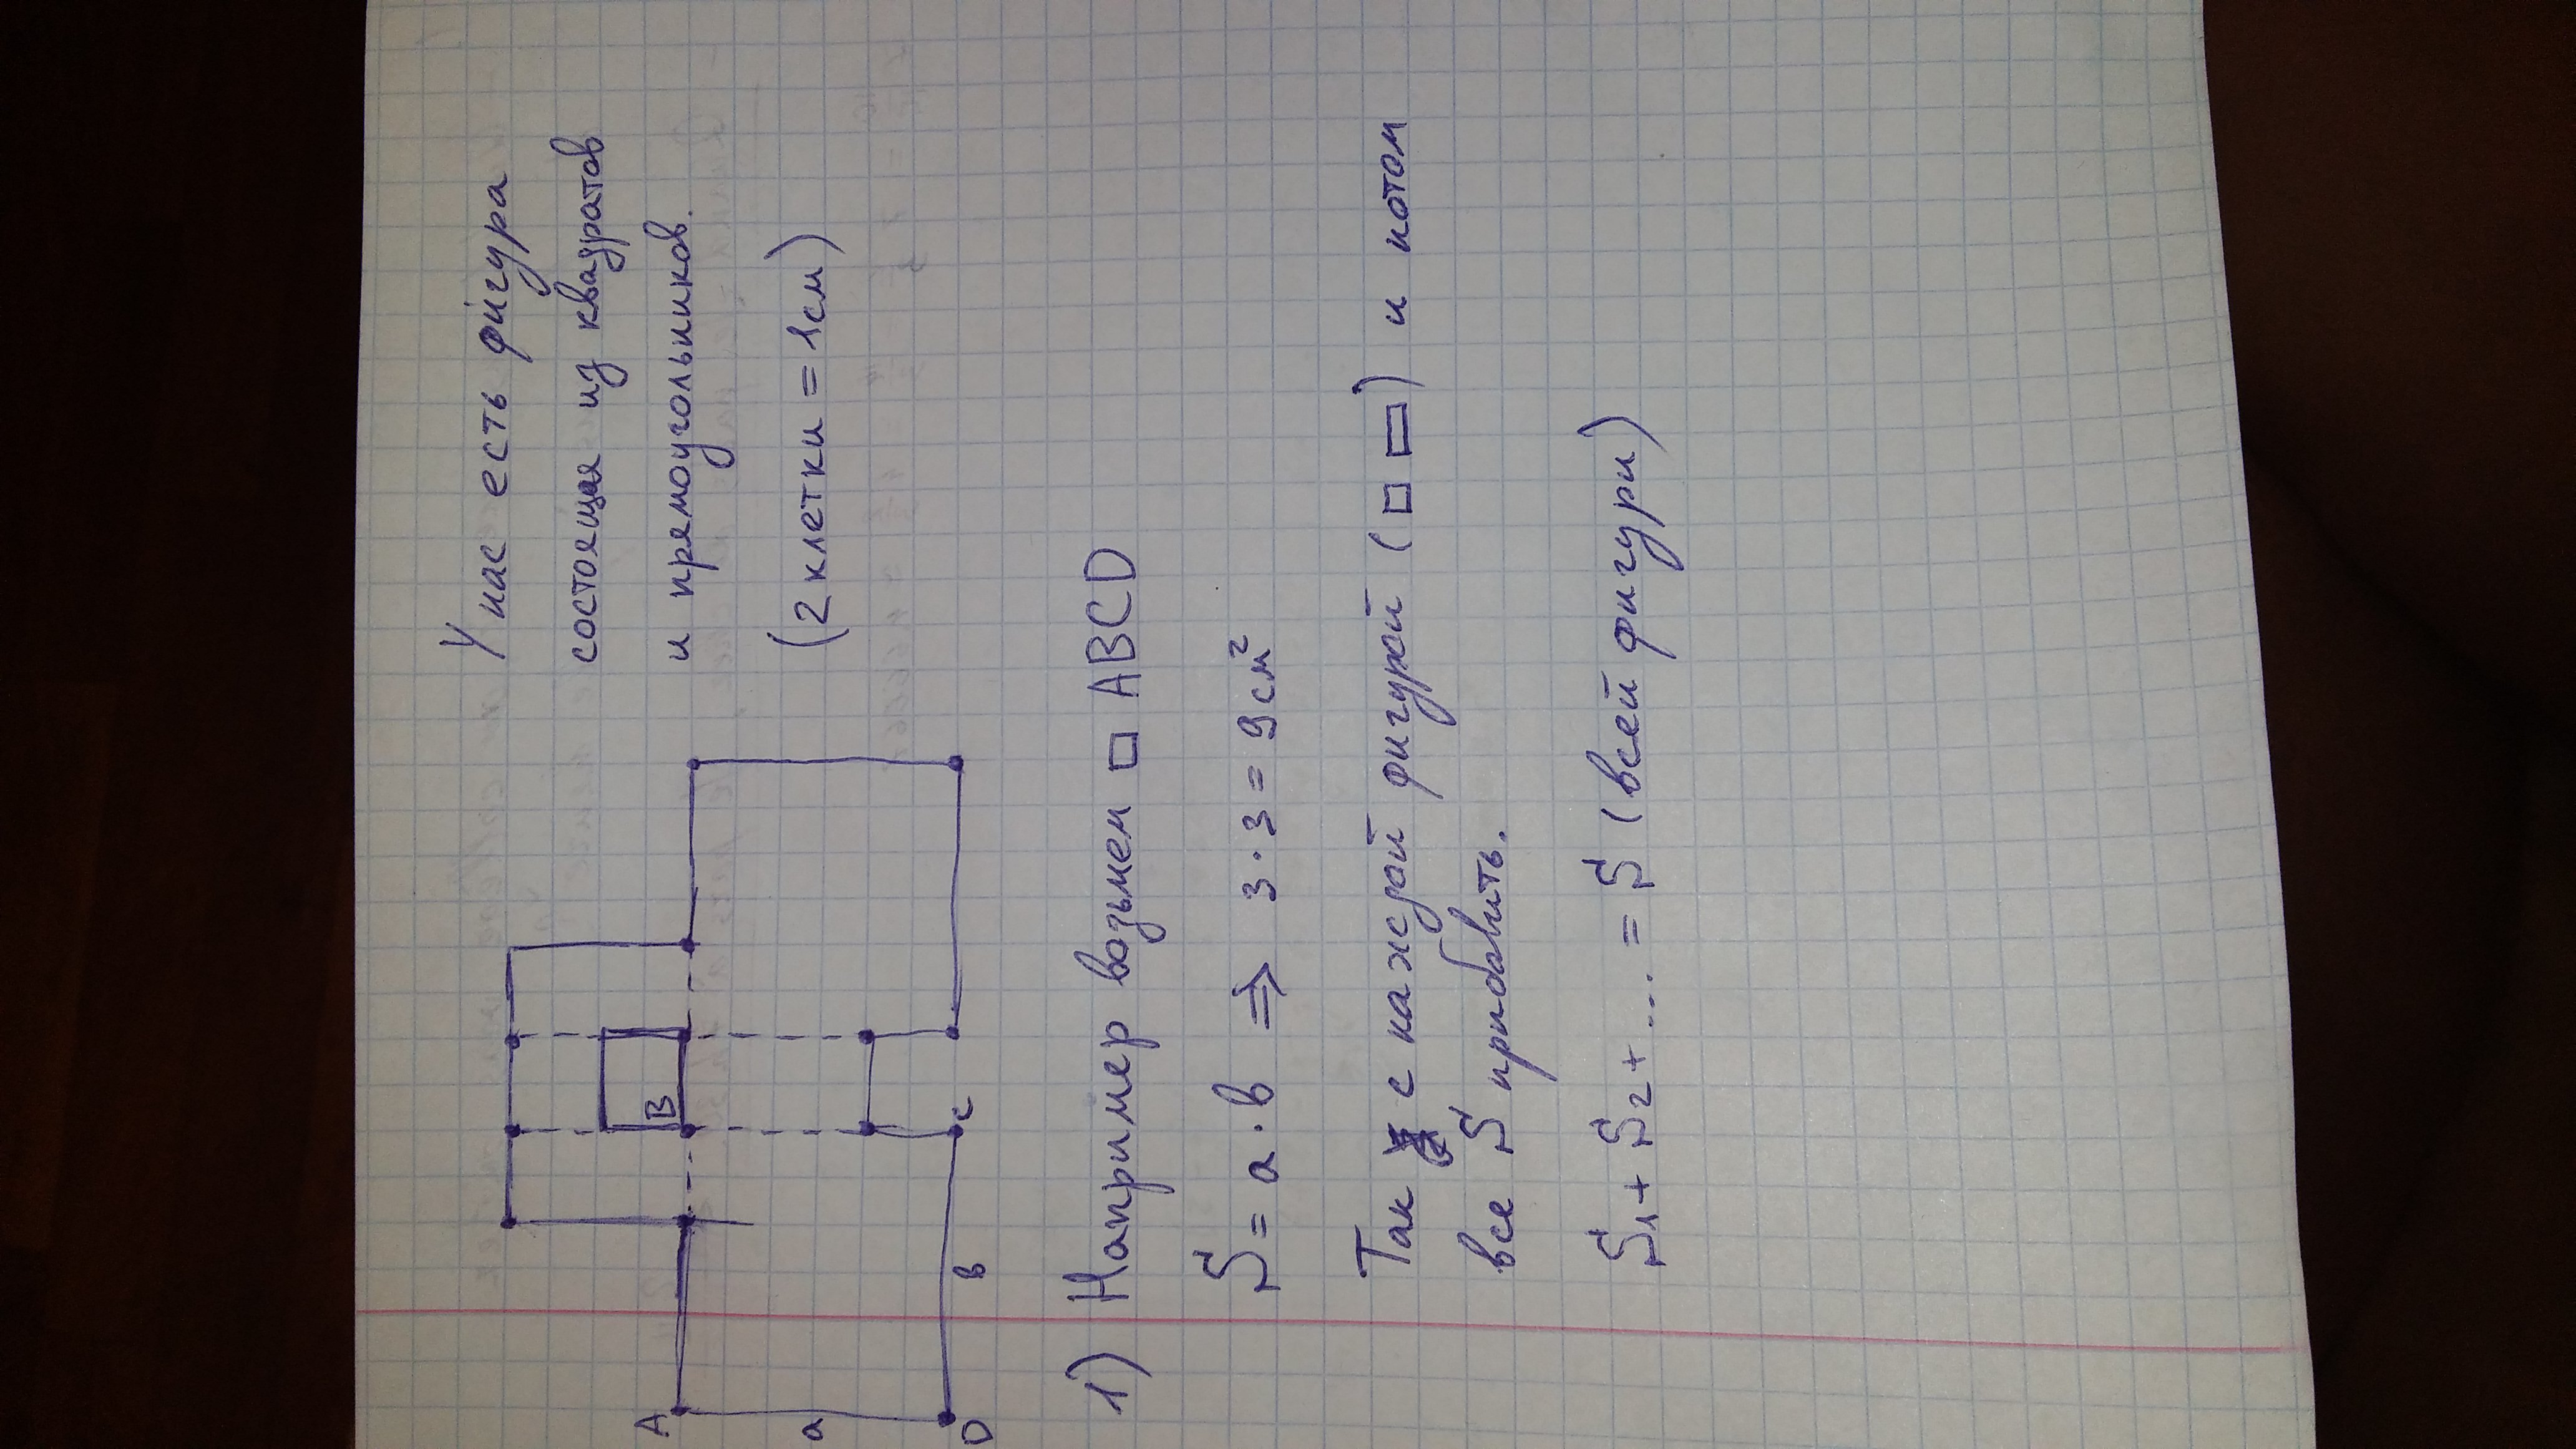 A
B
a
D
в
c
У нас есть фигура
состоящая из квадратов
и прямоугольников.
(2 клетки = 1см)
1) Например возьмем □ ABCD
S = a · в ⇒ 3 · 3 = 9 см²
Так с каждой фигурой (□ ▭) и потом
все S прибавить.
S₁ + S₂ + ... = S (всей фигури)